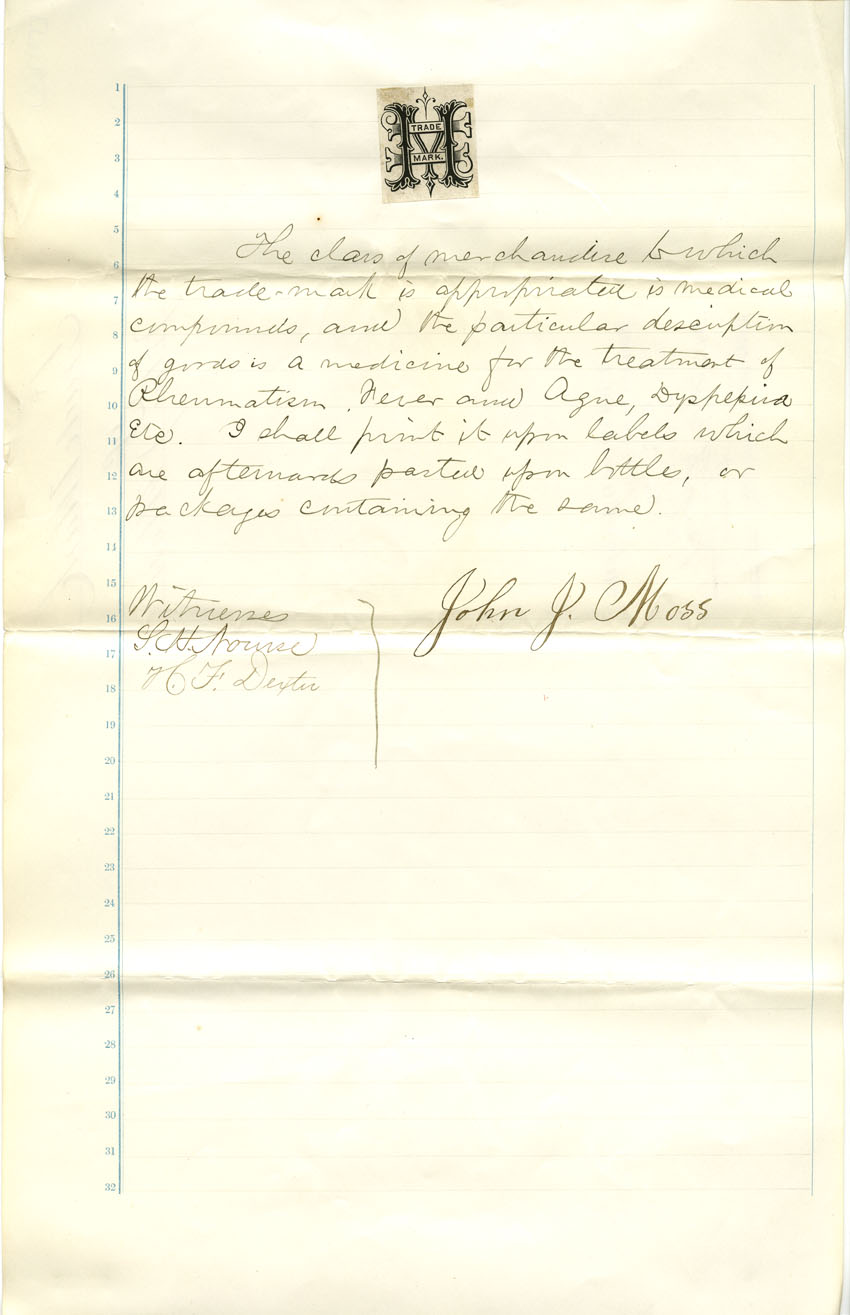 TRADE
MARK.
The class of merchandise to which
the trade-mark is appropriated is medical
compounds, and the particular description
of goods is a medicine for the treatment of
Rheumatism, Fever and Ague, Dyspepsia
Etc. I shall print it upon labels which
are afterwards pasted upon bottles, or
packages containing the same.
Witnesses
S. H. Nourse
H. F. Dexter
John J. Moss
1
2
3
4
5
6
7
8
9
10
11
12
13
14
15
16
17
18
19
20
21
22
23
24
25
26
27
28
29
30
31
32